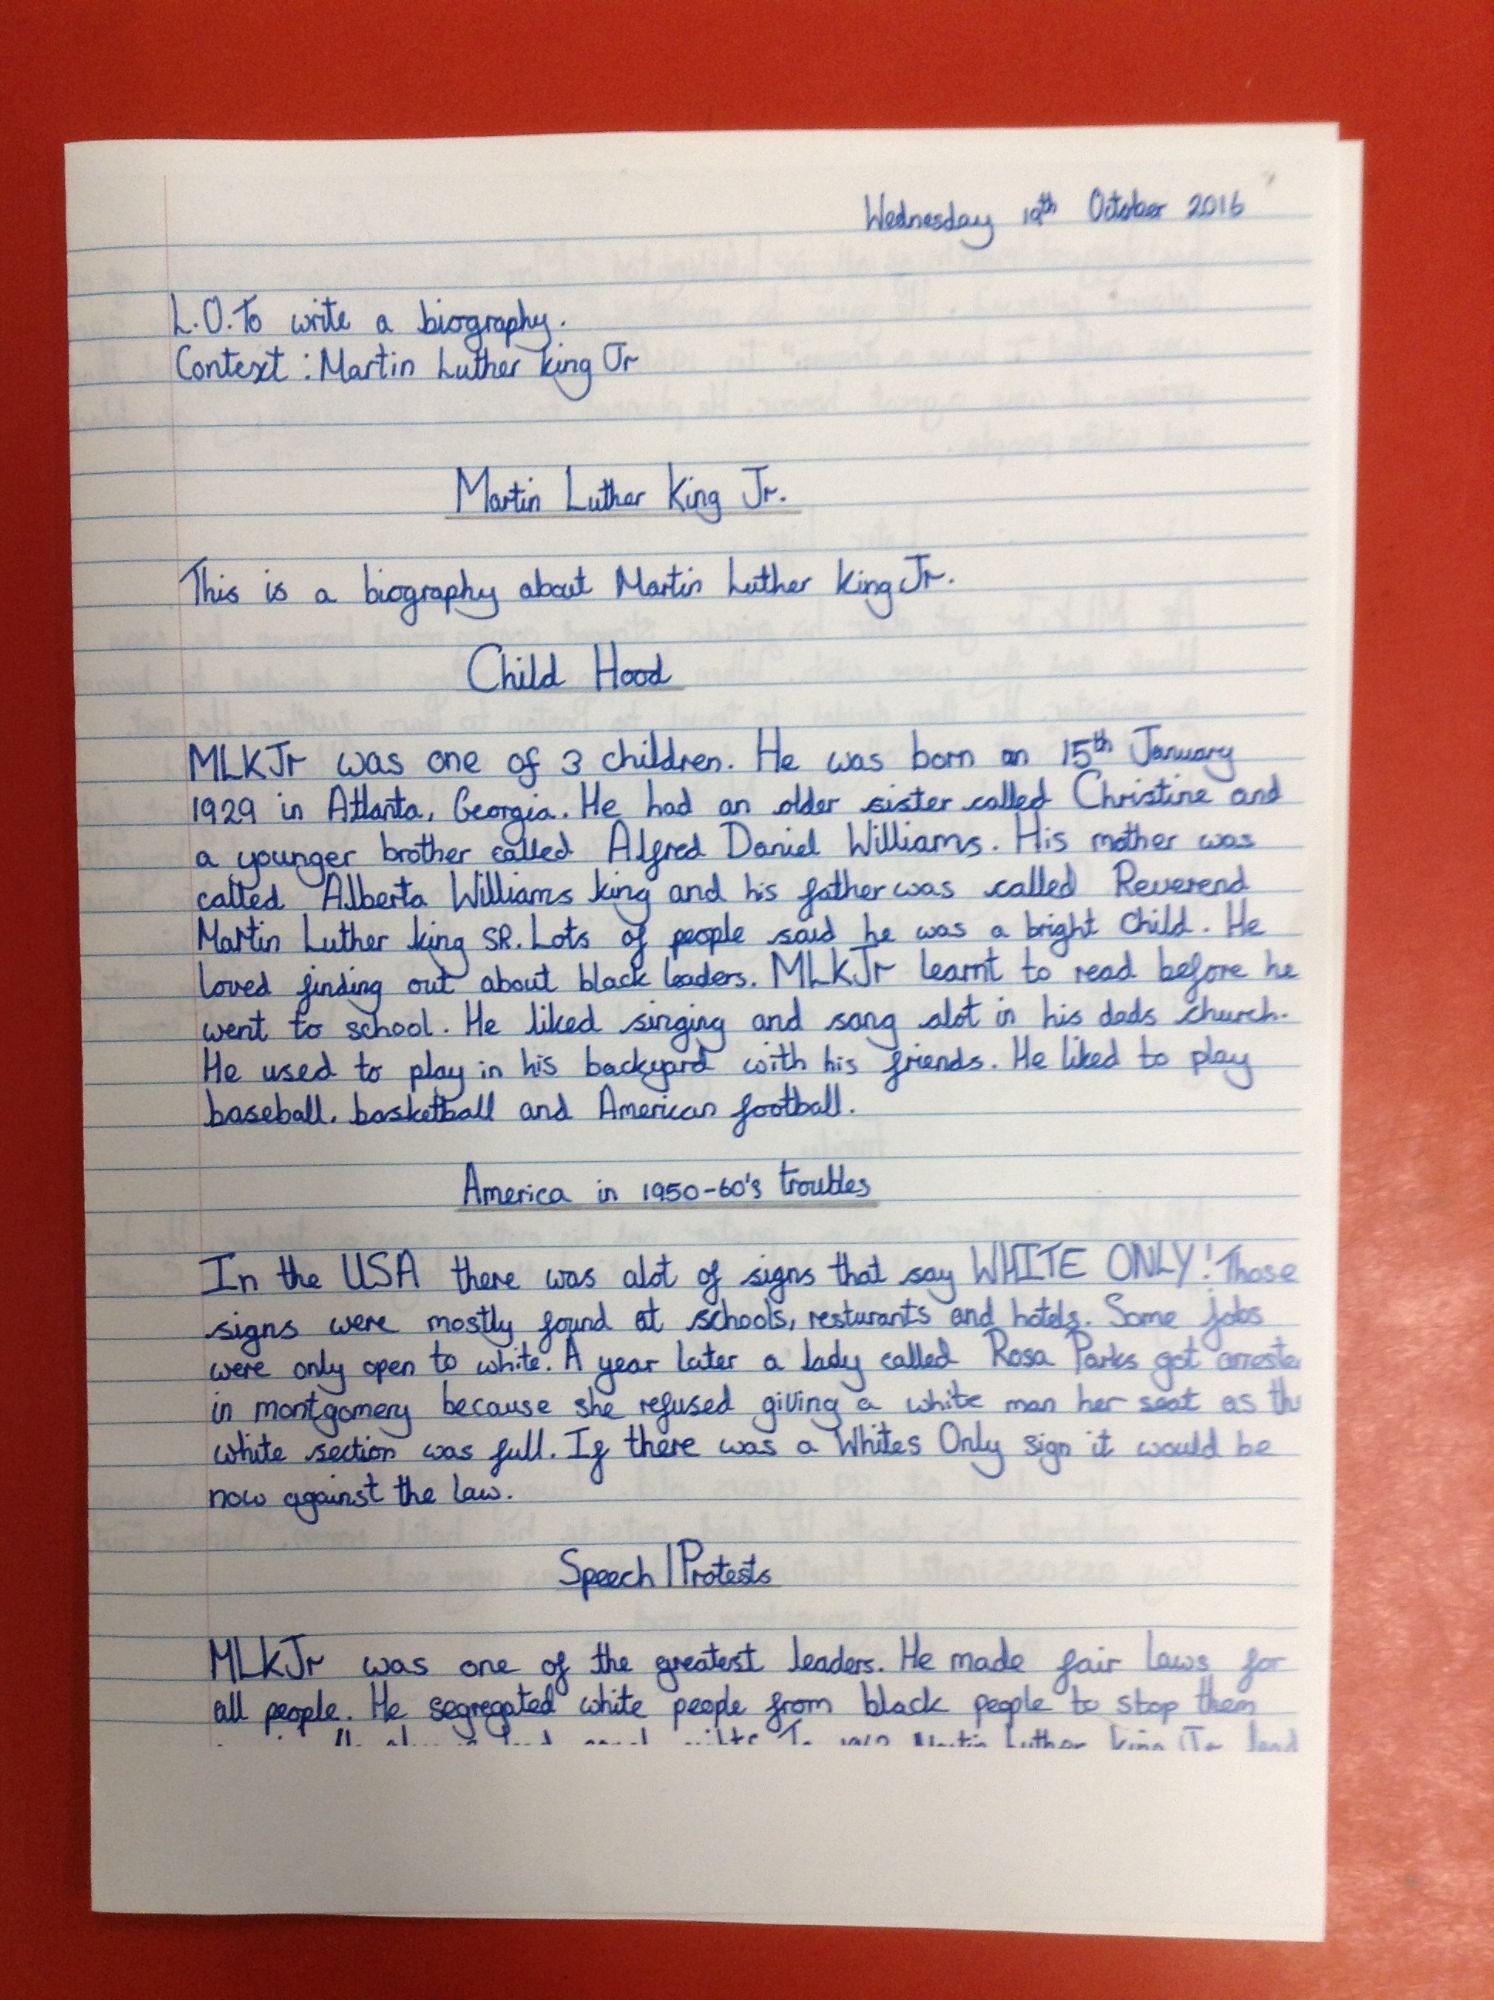 Wednesday 19th October 2016
L.O.To write a biography.
Context : Martin Luther king Jr
Martin Luther King Jr.
This is a biography about Martin Luther king Jr.
Child Hood
MLKJr was one of 3 children. He was born on 15th January
1929 in Atlanta, Georgia. He had an older sister called Christine and
a younger brother called Alfred Daniel Williams. His mother was
called Alberta Williams king and his father was called Reverend
Martin Luther king SR. Lots of people said he was a bright child. He
loved finding out about black leaders. MLKJr learnt to read before he
went to school. He liked singing and sang alot in his dads church.
He used to play in his backyard with his friends. He liked to play
baseball, basketball and American football.
America in 1950-60's troubles
In the USA there was alot of signs that say WHITE ONLY! Those
signs were mostly found at schools, resturants and hotels. Some jobs
were only open to white. A year later a lady called Rosa Parks got arreste
in montgomery because she refused giving a white man her seat as the
white section was full. If there was a Whites Only sign it would be
now against the law.
Speech/Protests
MLKJr was one of the greatest leaders. He made fair laws for
all people. He segregated white people from black people to stop them
Martin Luther king Jr lead